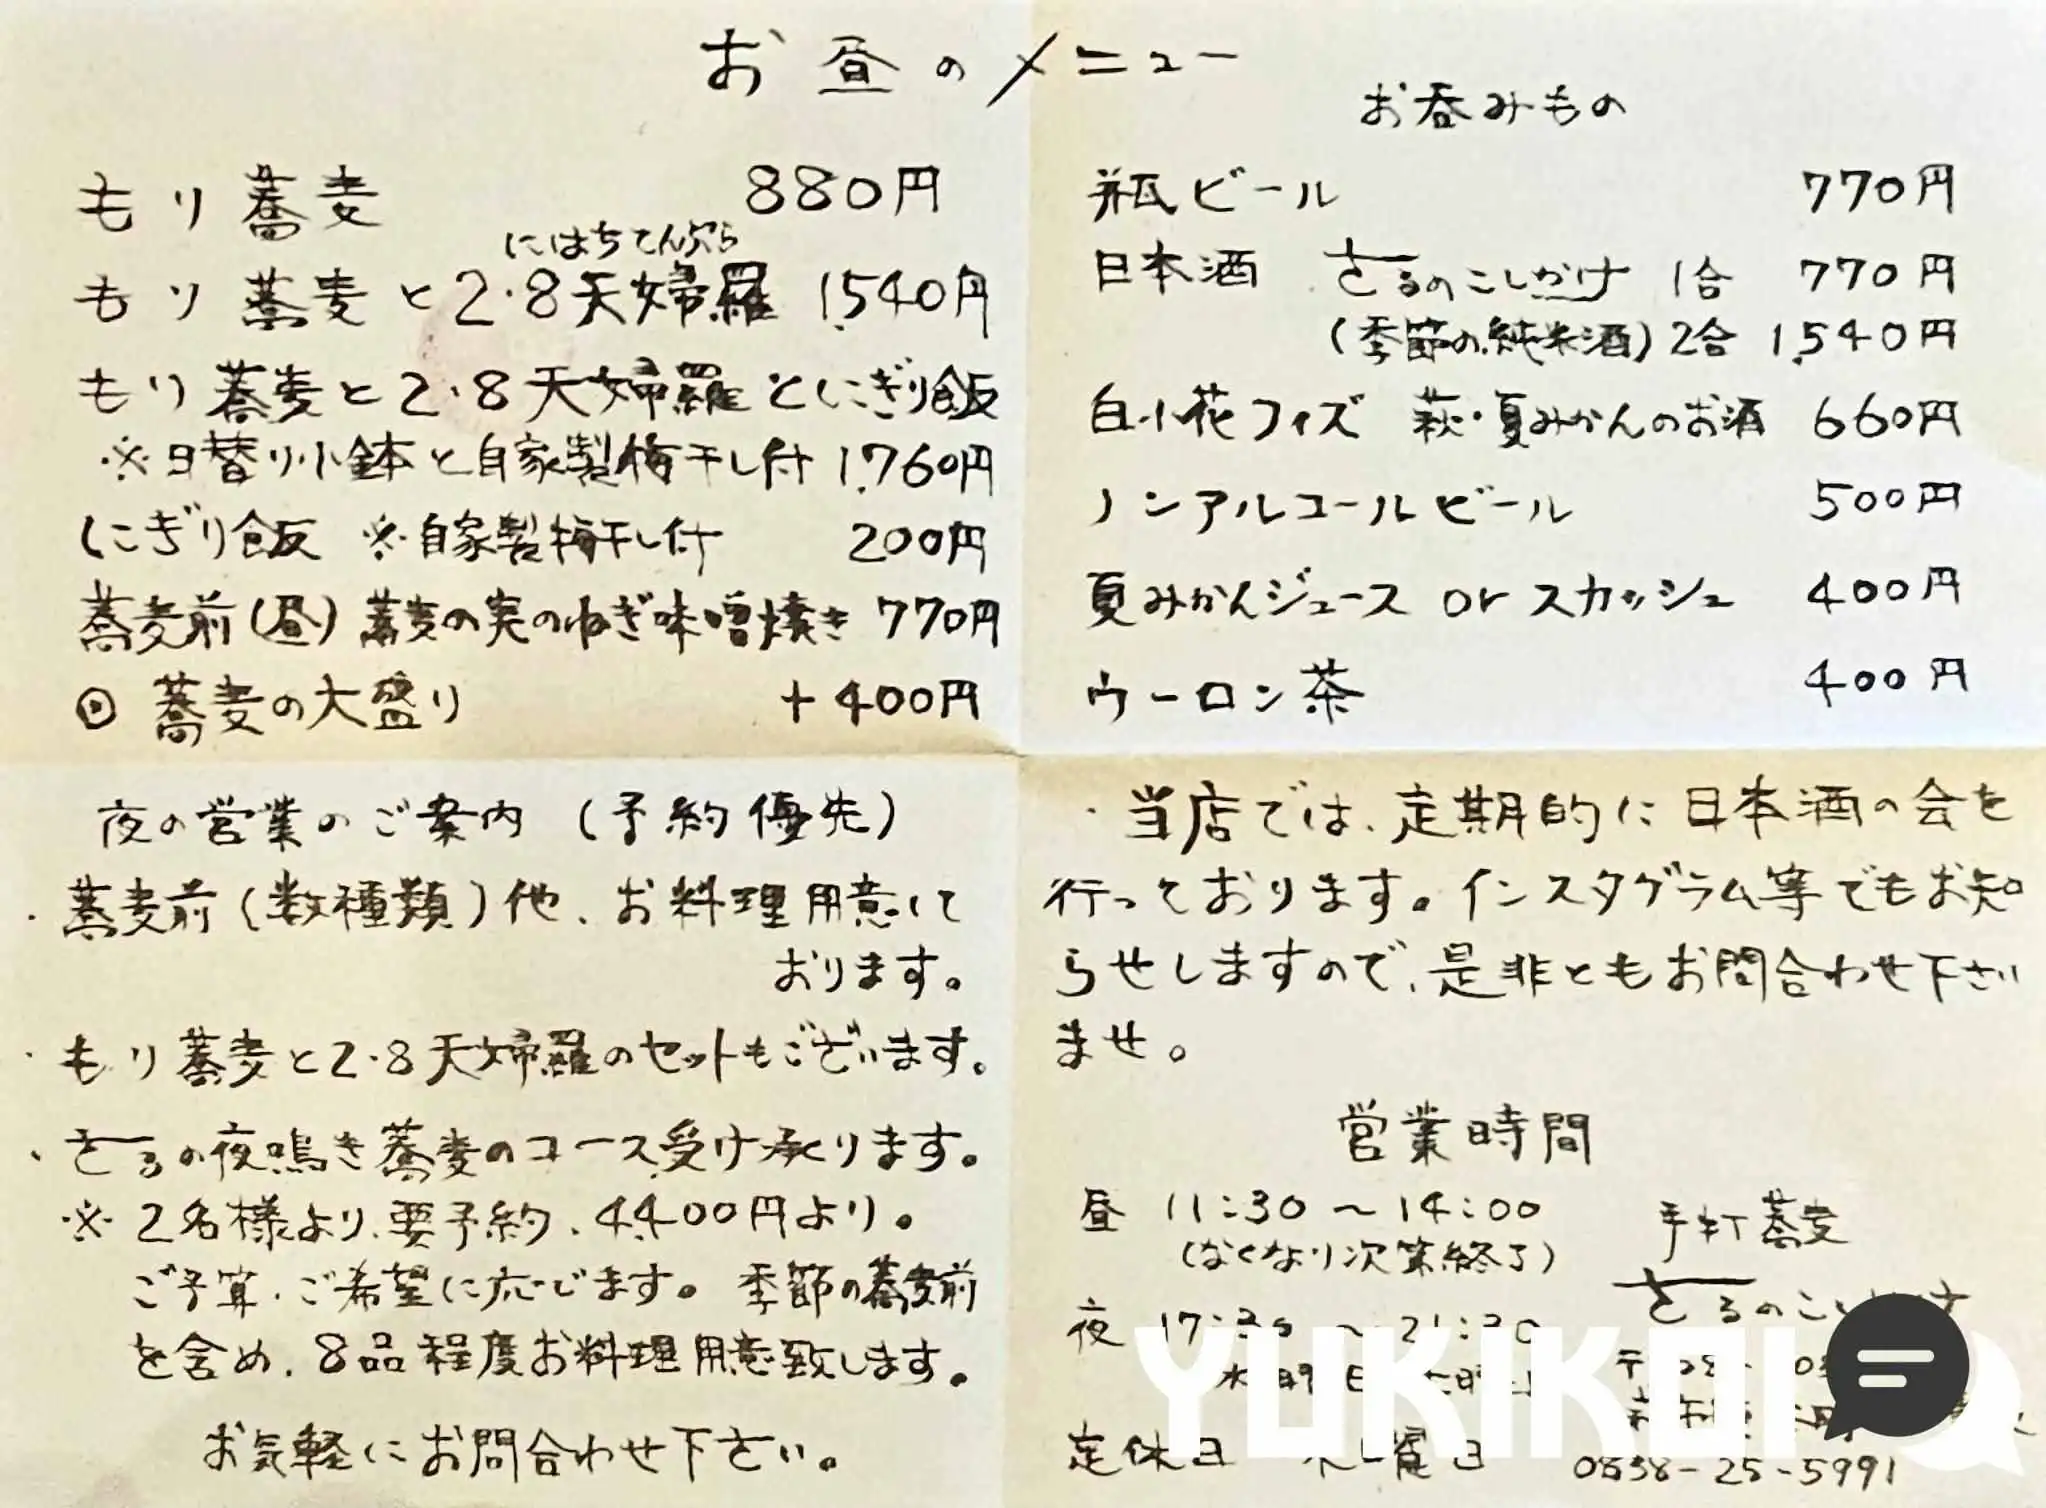 お昼のメニュー
もり蕎麦 880円
にはちてんぷら
もり蕎麦と2・8天婦羅 1,540円
もり蕎麦と2・8天婦羅とにぎり飯
※日替り小鉢と自家製梅干し付 1,760円
にぎり飯 ※自家製梅干し付 200円
蕎麦前(昼) 蕎麦の実のねぎ味噌焼き 770円
◎ 蕎麦の大盛り +400円
お呑みもの
瓶ビール 770円
日本酒 さるのこしかけ 1合 770円
(季節の純米酒) 2合 1,540円
白小花フィズ 萩・夏みかんのお酒 660円
ノンアルコールビール 500円
夏みかんジュース or スカッシュ 400円
ウーロン茶 400円
夜の営業のご案内 (予約優先)
・蕎麦前(数種類)他、お料理用意して
おります。
・もり蕎麦と2・8天婦羅のセットもございます。
・さるの夜鳴き蕎麦のコース受け承ります。
※2名様より、要予約、4,400円より。
ご予算・ご希望に応じます。季節の蕎麦前
を含め、8品程度お料理用意致します。
お気軽にお問合わせ下さい。
・当店では、定期的に日本酒の会を
行っております。インスタグラム等でもお知
らせしますので、是非ともお問合わせ下さい
ませ。
営業時間
昼 11:30 〜 14:00
(なくなり次第終了)
夜 17:30 〜 21:30
定休日 曜日
手打蕎麦
さるのこしかけ
0838-25-5991
YUKIKOI